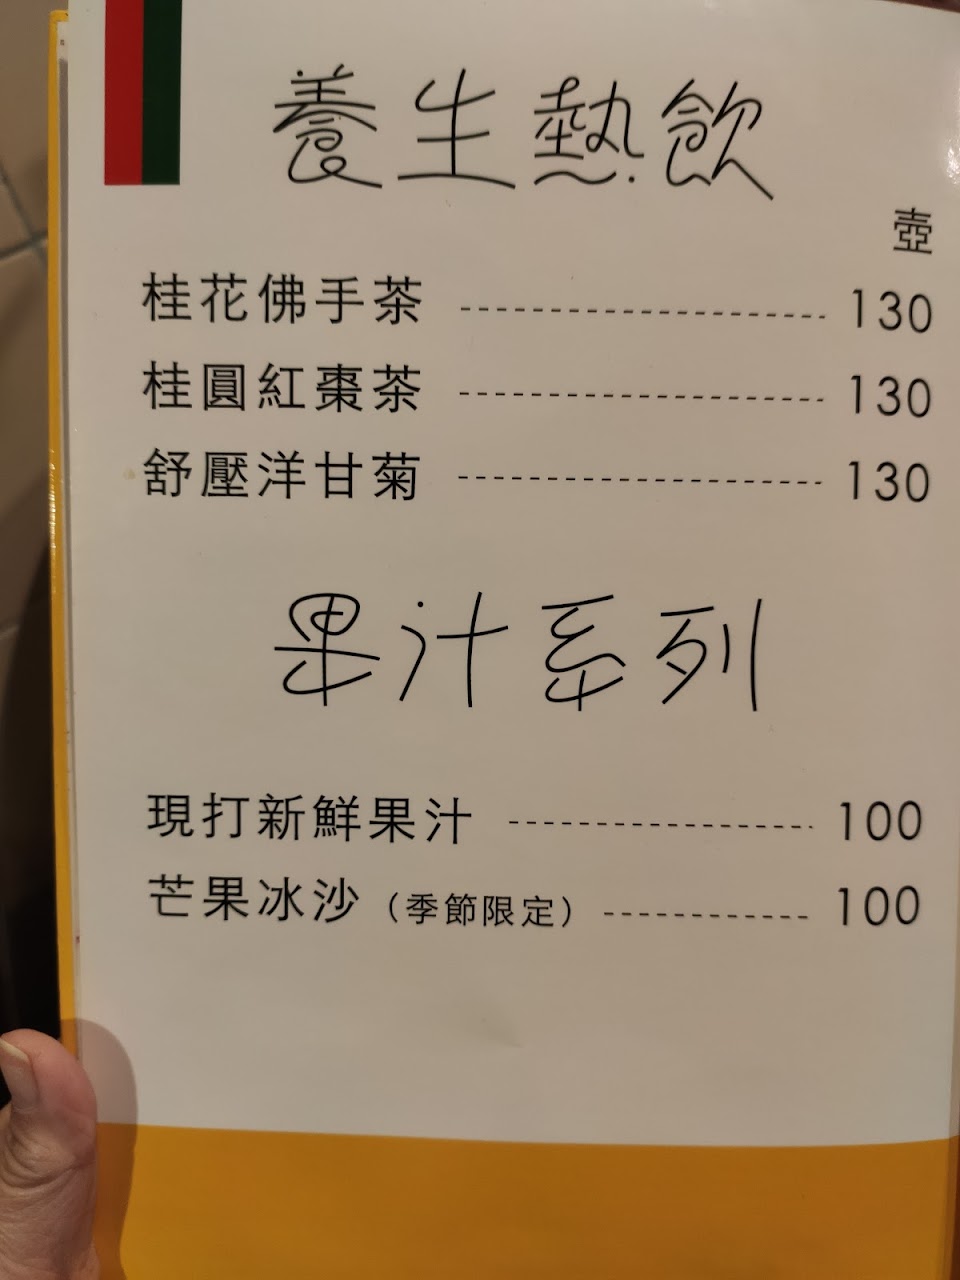 養生熱飲
壺
桂花佛手茶 130
桂圓紅棗茶 130
舒壓洋甘菊 130
果汁系列
現打新鮮果汁 100
芒果冰沙（季節限定） 100